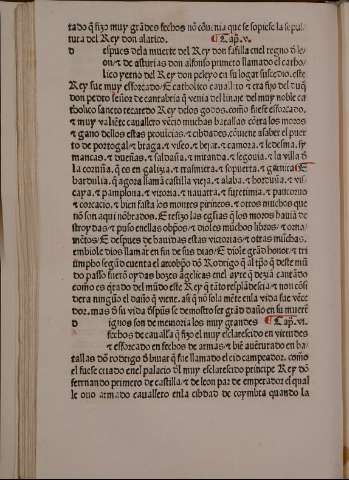 tado q̃ fizo muy grãdes fechos nõ cõuenia que se sopiese la sepul
tura del Rey don alarico. ¶ Cap̃. v.
d espues dela muerte del Rey don fafilla enel regno d̃ le
on/ ⁊ de asturias don alfonso primero llamado el catho
lico yerno del Rey don pelayo en su logar sucedio. este
Rey fue muy esforcado ⁊ catholico cauallero ⁊ era fijo del duq̃
don pedro señor de cantabria q̃ venia del linaje del muy noble ca
tholico sancto recaredo Rey delos godos. como fuese esforcado.
⁊ muy valiẽte cauallero vẽcio muchas batallas cõtra los moros
⁊ gano dellos estas prouĩcias/ ⁊ cibdades. cõuiene a saber el puer
to de portogal/ ⁊ braga. ⁊ viseo. ⁊ bejar. ⁊ camora. ⁊ ledesma. sy
mancas. ⁊ dueñas. ⁊ saldaña. ⁊ miranda. ⁊ segouia. ⁊ la villa d̃
la coruña. q̃ es en galizia. ⁊ trasmiera. ⁊ sopuerta. ⁊ garnica ⁊
bardulia. q̃ agora llamã castilla vieja. ⁊ alaba. ⁊ horduña. ⁊ vis
caya. ⁊ pamplona. ⁊ vitoria. ⁊ nauarra. ⁊ supetinia. ⁊ panconio
⁊ corcacio. ⁊ bien fasta los montes pirineos. ⁊ otros muchos que
nõ son aqui nõbrados. ⁊ refizo las eglsias q̃ los moros hauiã de
stroydas ⁊ puso enellas obp̃os/ ⁊ dioles muchos libros/ ⁊ orna
mẽtos/ ⁊ despues de hauidas estas victorias/ ⁊ otras muchas.
embiole dios llamar en fin de sus dias/ ⁊ diole grãd honor/ ⁊ tri
umpho segũd cuenta el arcob̃po dõ Rodrigo q̃ al tp̃o q̃ deste mũ
do passo fuerõ oydas bozes ãgelicas enel ayre q̃ dezia cantãdo
como es q̃tado del mũdo este Rey q̃ tãto resplãdescia/ ⁊ non cõsi
dera ninguo el daño q̃ viene. asi q̃ nõ sola mẽte enla vida fue vẽce
dor. mas d̃ su vida dsp̃ues se demostro ser grãd daño en su muerte
d ignos son de memoria los muy grandes ¶ Cap̃. vi.
fechos de caualla q̃ fizo el muy esclarescido en virtudes
⁊ esforcado en fechos de armas ⁊ biẽ auẽturado en ba
tallas dõn rodrigo d̃ biuar q̃ fue llamado el cid campeador. como
el fuese criado enel palacio d̃l muy esclarescido principe Rey dõ
fernando primero de castilla/ ⁊ de leon par de emperador el qual
le ouo armado cauallero enla cibdad de coymbra quando la